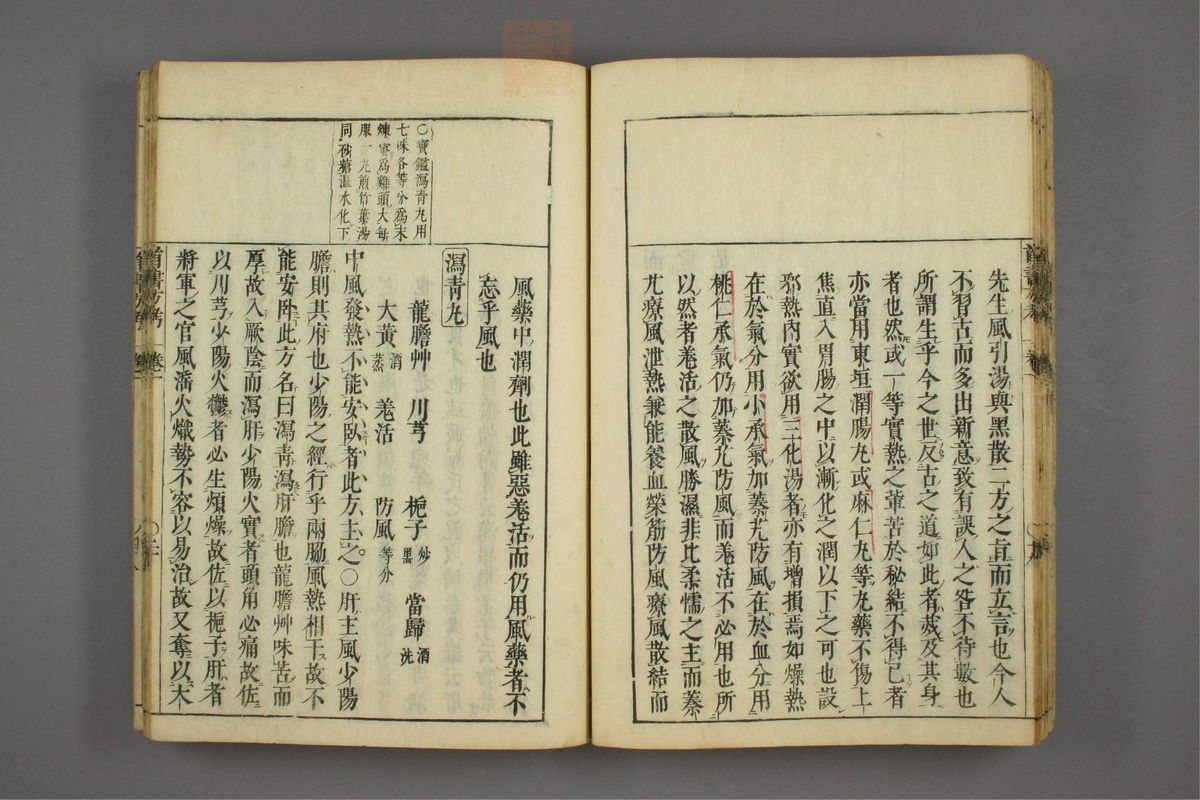 先生風引湯與黑散二方之旨而立言也今人
不習古而多出新意致有誤人之咎不待數也
所謂生乎今之世反古之道如此者烖及其身
者也然或一等實熱之軰苦於秘結不得已者
亦當用東垣潤腸丸或麻仁丸等丸藥不傷上
焦直入胃腸之中以漸化之潤以下之可也設
邪熱內實欲用三化湯者亦有增損焉如燥熱
在於氣分用小承氣加蓁艽防風在於血分用
桃仁承氣仍加蓁艽防風而羗活不必用也所
以然者羗活之散風勝濕非比柔懦之主而蓁
艽療風泄熱兼能養血榮筋防風療風散結而
風藥中潤劑也此雖惡羗活而仍用風藥者不
忘乎風也
瀉青丸
龍膽艸 川芎 梔子炒黑 當歸酒洗
大黃酒蒸 羗活 防風等分
中風發熱不能安臥者此方主之○肝主風少陽
膽則其府也少陽之經行乎兩脇風熱相干故不
能安臥此方名曰瀉青瀉肝膽也龍膽艸味苦而
厚故入厥陰而瀉肝少陽火實者頭角必痛故佐
以川芎少陽火鬱者必生煩燥故佐以梔子肝者
將軍之官風滛火熾勢不容以易治故又奪以大
○寶鑑瀉青丸用
七味各等分爲末
煉蜜爲雞頭大每
服一丸煎竹葉湯
同砂糖温水化下